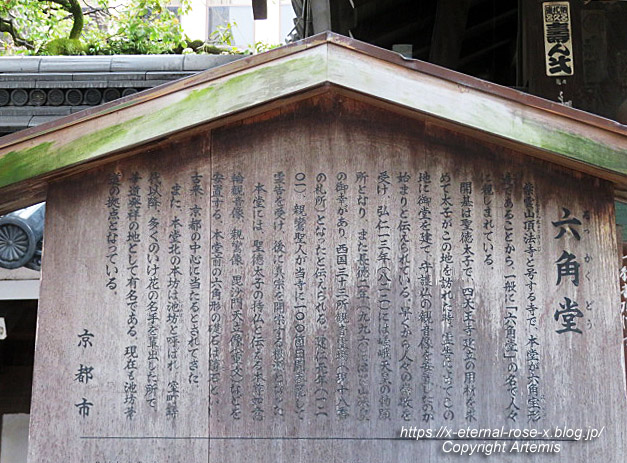 六角堂
ろっかくどう
紫雲山頂法寺と号する寺で、本堂が六角宝形
造であることから、一般に「六角堂」の名で人々
に親しまれている。
開基は聖徳太子で、四天王寺建立の用材を求
めて太子がこの地を訪れた時、霊告によってこの
地に御堂を建て、守護仏の観音像を安置したのが
始まりと伝えられている。早くから人々の崇敬を
受け、弘仁十三年(八二二)には嵯峨天皇の勅願
所となり、また長徳二年(九九六)には花山法皇
の御幸があり、西国三十三所観音霊場(現十八番
の札所)となったと伝えられる。建仁元年(一二
〇一)、親鸞聖人が当寺に一〇〇日間参籠して
霊告を受け、後に真宗を開宗する根源となった
本堂には、聖徳太子の持仏と伝える本尊如意
輪観音像、親鸞像、毘沙門天立像(重文)などを
安置する。本堂前の六角形の礎石は臍石といい、
古来、京都の中心に当たるとされてきた。
また、本堂北の本坊は池坊と呼ばれ、室町時
代以降、多くのいけ花の名手を輩出した所で、
華道発祥の地として有名である。現在も池坊華
道の拠点となっている。
京都市
壽
https://x-eternal-rose-x.blog.jp/
Copyright Artemis